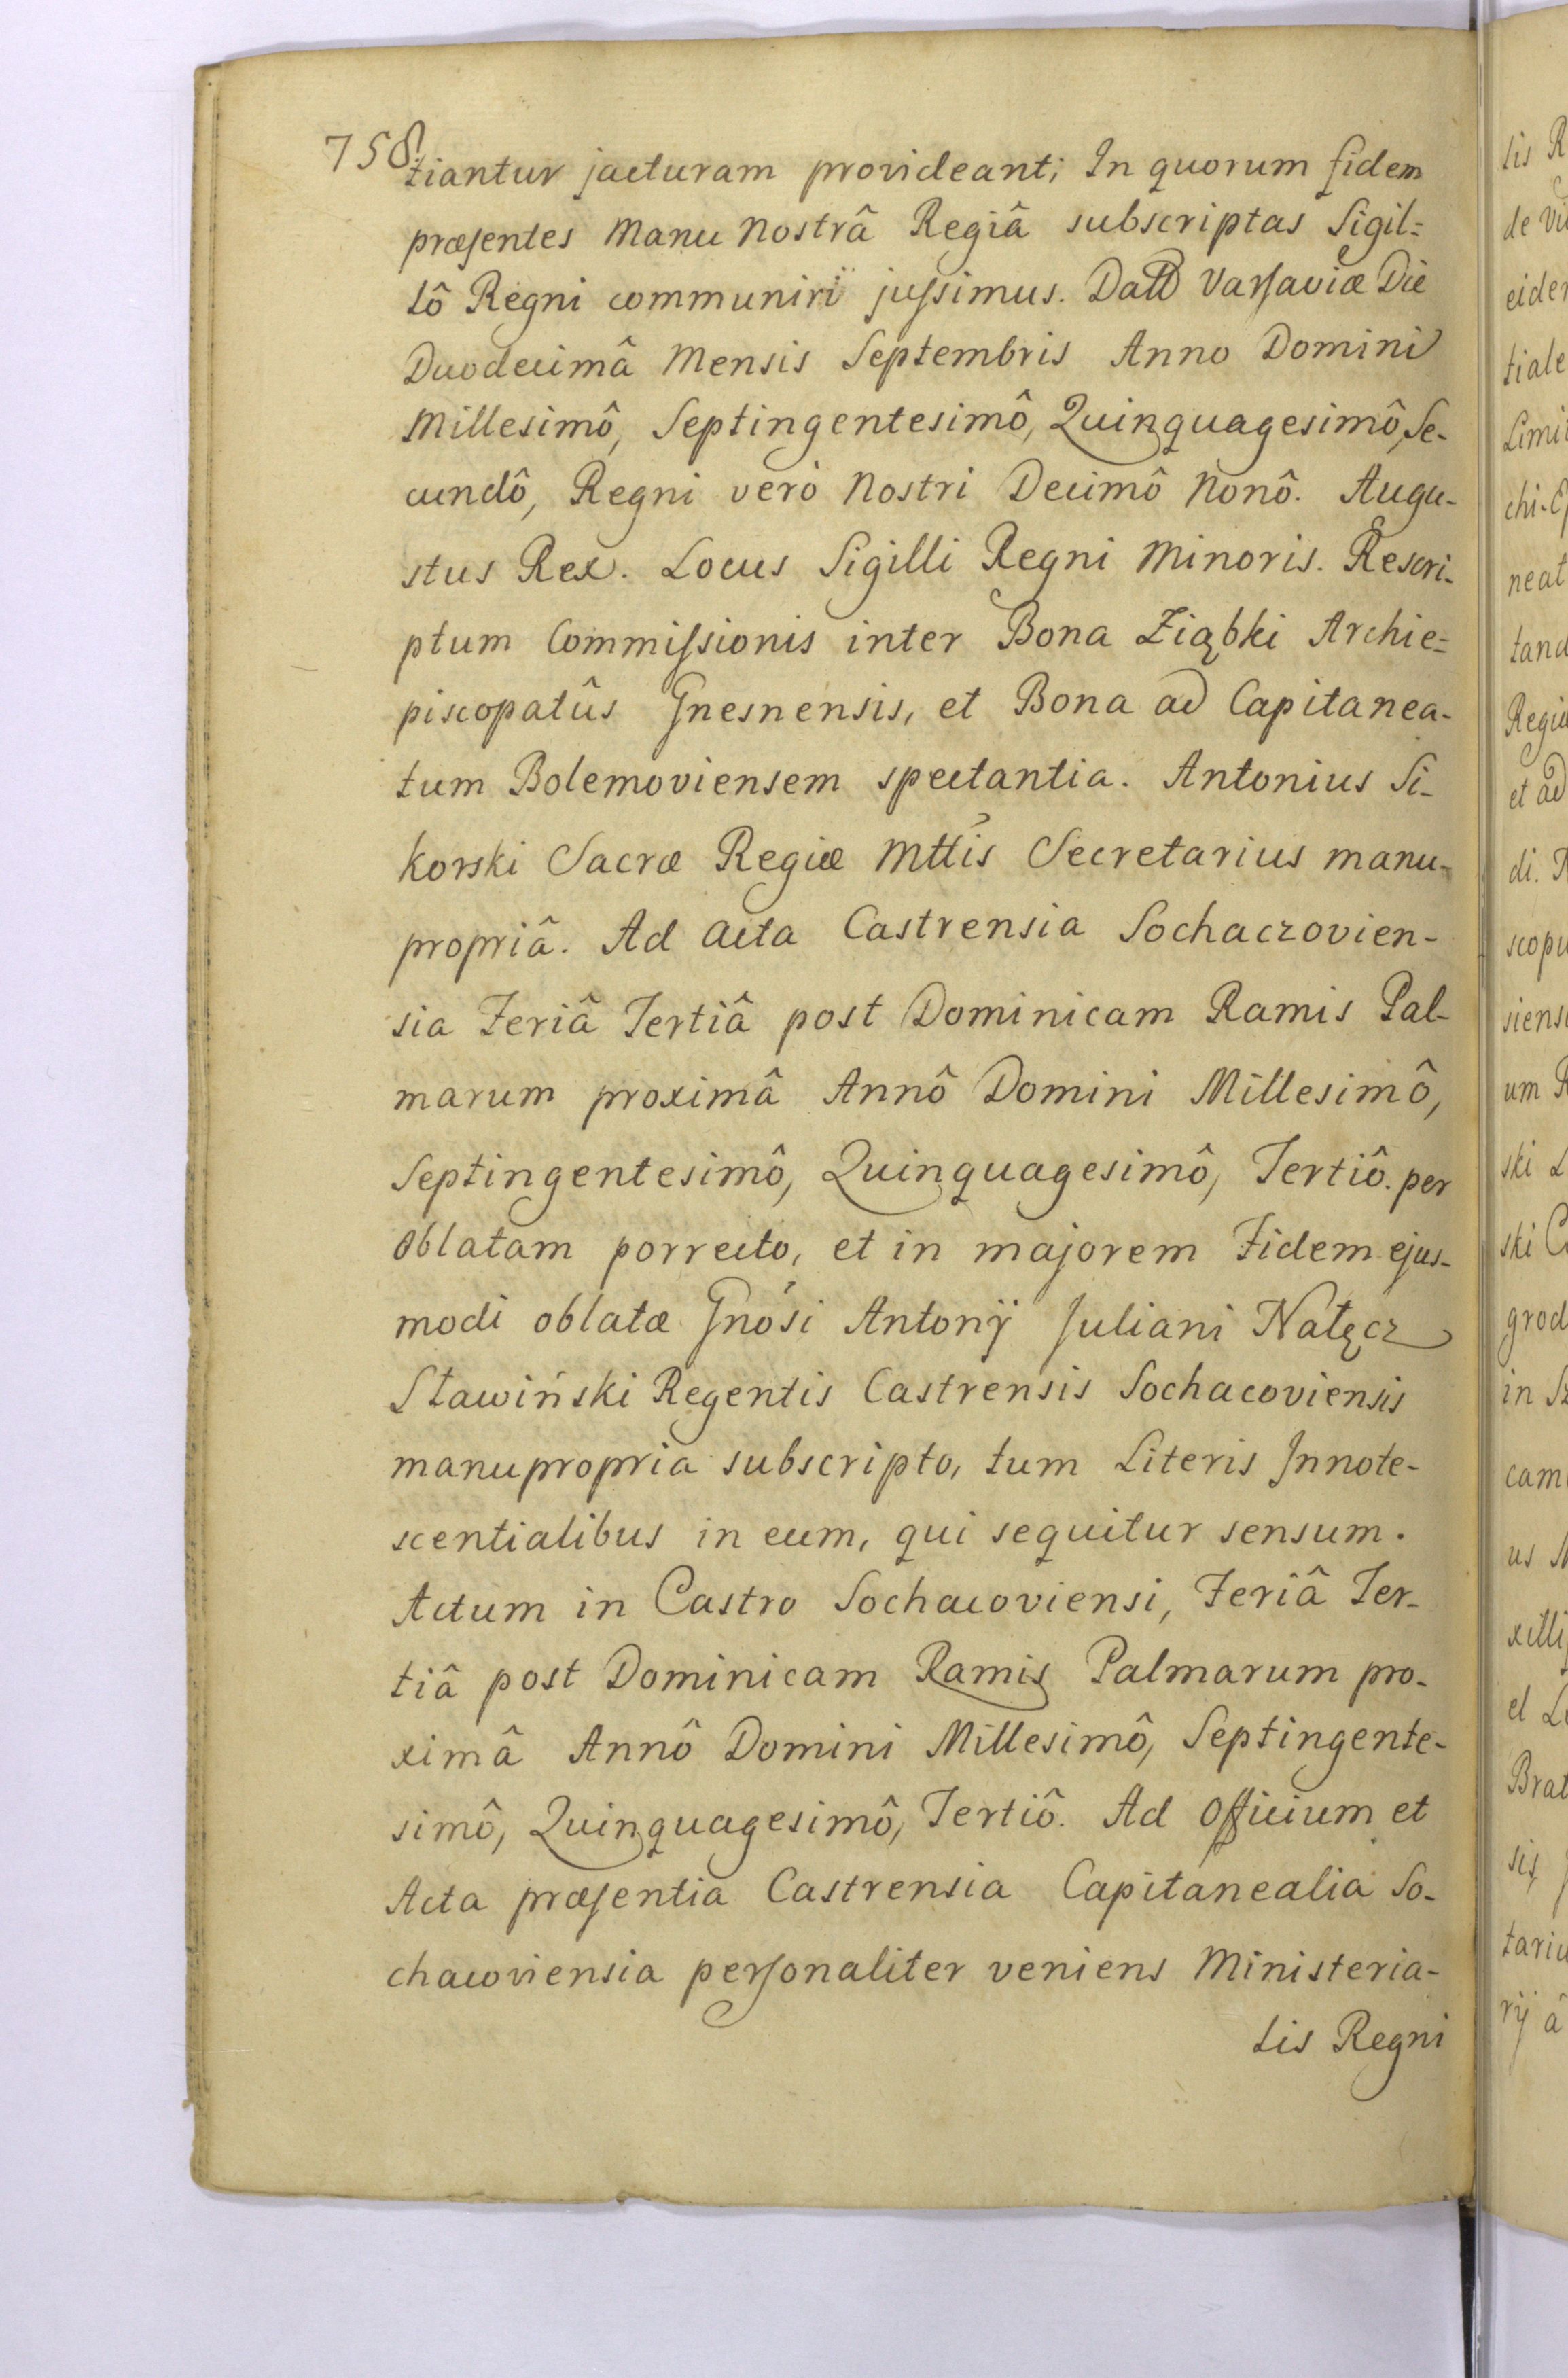 758
tiantur jacturam provideant; In quorum fidem
præsentes Manu Nostrâ Regiâ subscriptas Sigil=
lô Regni communiri jussimus. Datt Varsaviæ Die
Duodecimâ Mensis Septembris Anno Domini
Millesimô, Septingentesimô, Quinquagesimô, Se-
cundô, Regni verò Nostri Decimô Nonô. Augu-
stus Rex. Locus Sigilli Regni Minoris. Rescri-
ptum Commissionis inter Bona Ziąbki Archie=
piscopatûs Gnesnensis, et Bona ad Capitanea-
tum Bolemoviensem spectantia. Antonius Si-
korski Sacræ Regiæ Mttis Secretarius manu-
propriâ. Ad Acta Castrensia Sochaczovien-
sia Feriâ Tertiâ post Dominicam Ramis Pal-
marum proximâ Annô Domini Millesimô,
Septingentesimô, Quinquagesimô, Tertiô. per
Oblatam porrecto, et in majorem Fidem ejus-
modi oblatæ Gnosi Antonij Juliani Nałęcz
Sławiński Regentis Castrensis Sochacoviensis
manupropria subscripto, tum Literis Innote-
scentialibus in eum, qui sequitur sensum.
Actum in Castro Sochacoviensi, Feriâ Ter-
tiâ post Dominicam Ramis Palmarum pro-
ximâ Annô Domini Millesimô, Septingente-
simô, Quinquagesimô, Tertiô. Ad Officium et
Acta præsentia Castrensia Capitanealia So-
chacoviensia personaliter veniens Ministeria-
lis Regni